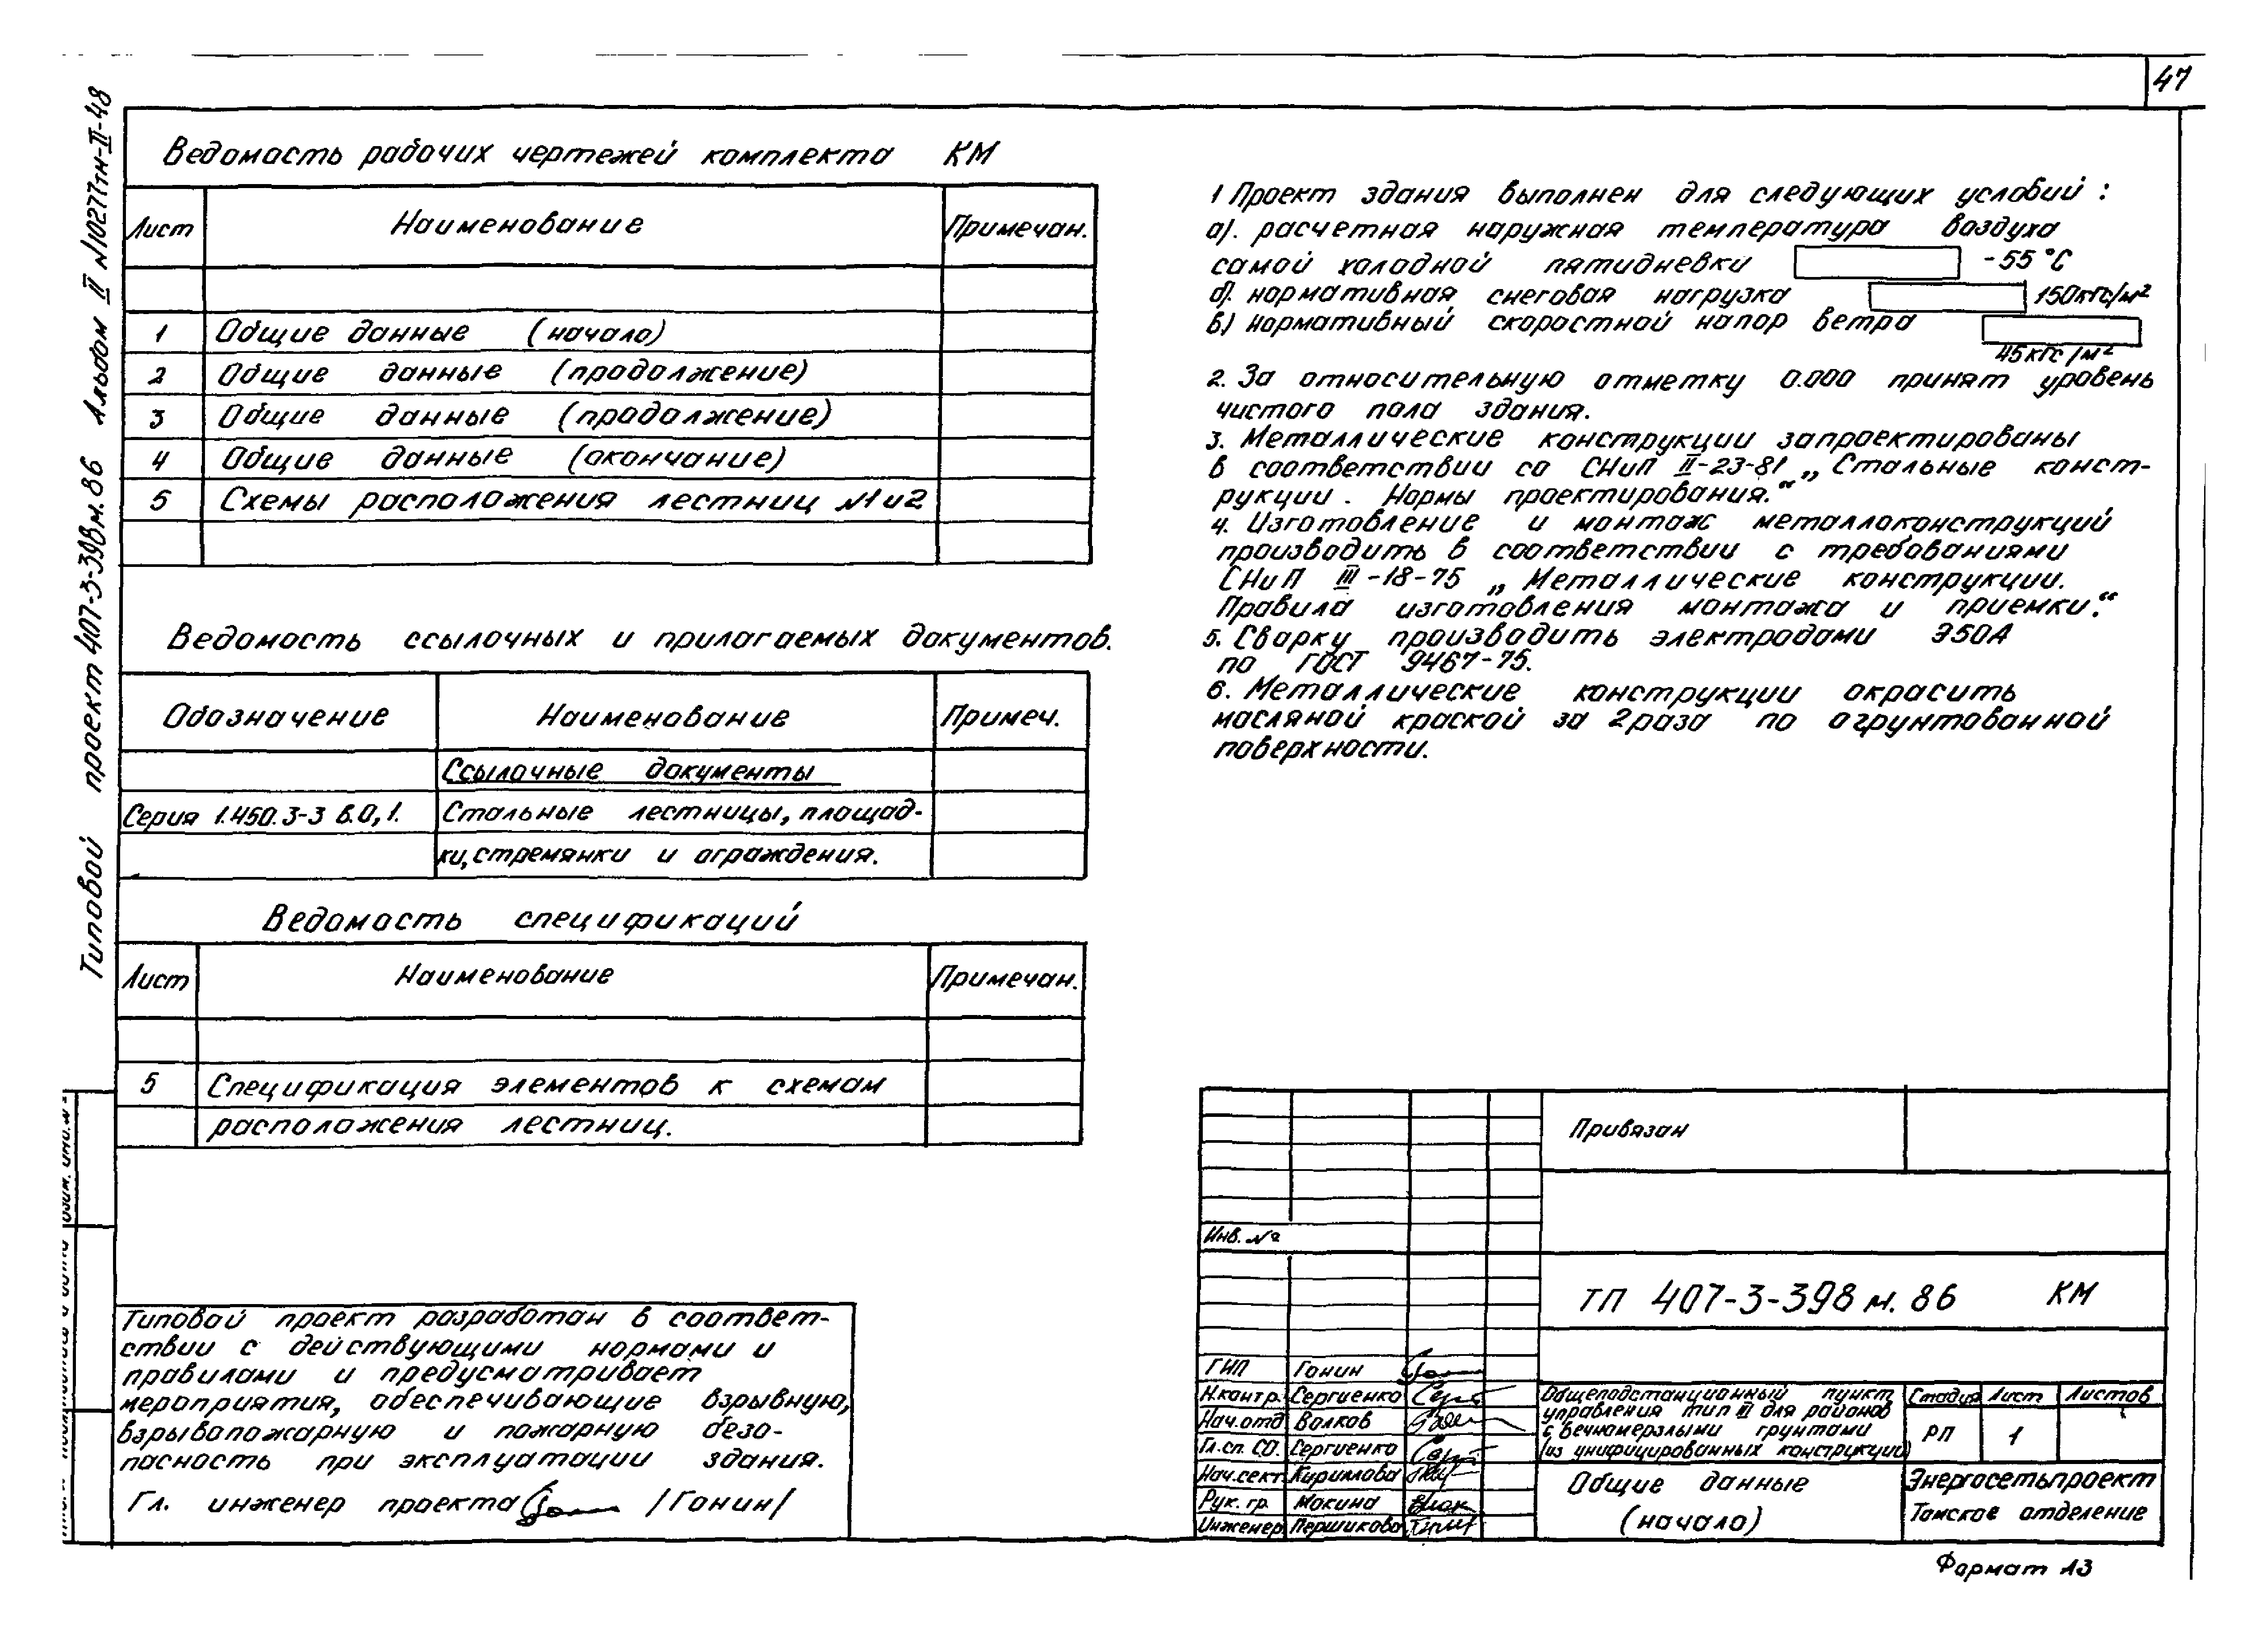 47
Типовой проект 407-3-398м.86 Альбом II №10277тм-II-48
Ведомость рабочих чертежей комплекта КМ
Лист Наименование Примечан.
1 Общие данные (начало)
2 Общие данные (продолжение)
3 Общие данные (продолжение)
4 Общие данные (окончание)
5 Схемы расположения лестниц №1 и 2
Ведомость ссылочных и прилагаемых документов.
Обозначение Наименование Примеч.
Ссылочные документы
Серия 1.450.3-3 в.0,1. Стальные лестницы, площад-
ки, стремянки и ограждения.
Ведомость спецификаций
Лист Наименование Примечан.
5 Спецификация элементов к схемам
расположения лестниц.
Типовой проект разработан в соответ-
ствии с действующими нормами и
правилами и предусматривает
мероприятия, обеспечивающие взрывную,
взрывопожарную и пожарную безо-
пасность при эксплуатации здания.
Гл. инженер проекта /Гонин/
1 Проект здания выполнен для следующих условий :
а). расчетная наружная температура воздуха
самой холодной пятидневки -55 °С
б). нормативная снеговая нагрузка 150кгс/м²
в) нормативный скоростной напор ветра
45кгс/м²
2. За относительную отметку 0.000 принят уровень
чистого пола здания.
3. Металлические конструкции запроектированы
в соответствии со СНиП II-23-81 „Стальные конст-
рукции. Нормы проектирования.“
4. Изготовление и монтаж металлоконструкций
производить в соответствии с требованиями
СНиП III-18-75 „Металлические конструкции.
Правила изготовления монтажа и приемки.“
5. Сварку производить электродами Э50А
по ГОСТ 9467-75.
6. Металлические конструкции окрасить
масляной краской за 2 раза по огрунтованной
поверхности.
Привязан
Инв. №
ТП 407-3-398 м. 86 КМ
ГИП Гонин
Н.контр. Сергиенко
Нач.отд Волков
Гл.сп. СО. Сергиенко
Нач.сект. Кириллова
Рук. гр. Мокина
Инженер Першикова
Общеподстанционный пункт
управления тип III для районов
с вечномерзлыми грунтами
(из унифицированных конструкций)
Стадия Лист Листов
РП 1
Общие данные
(начало)
Энергосетьпроект
Томское отделение
Формат А3